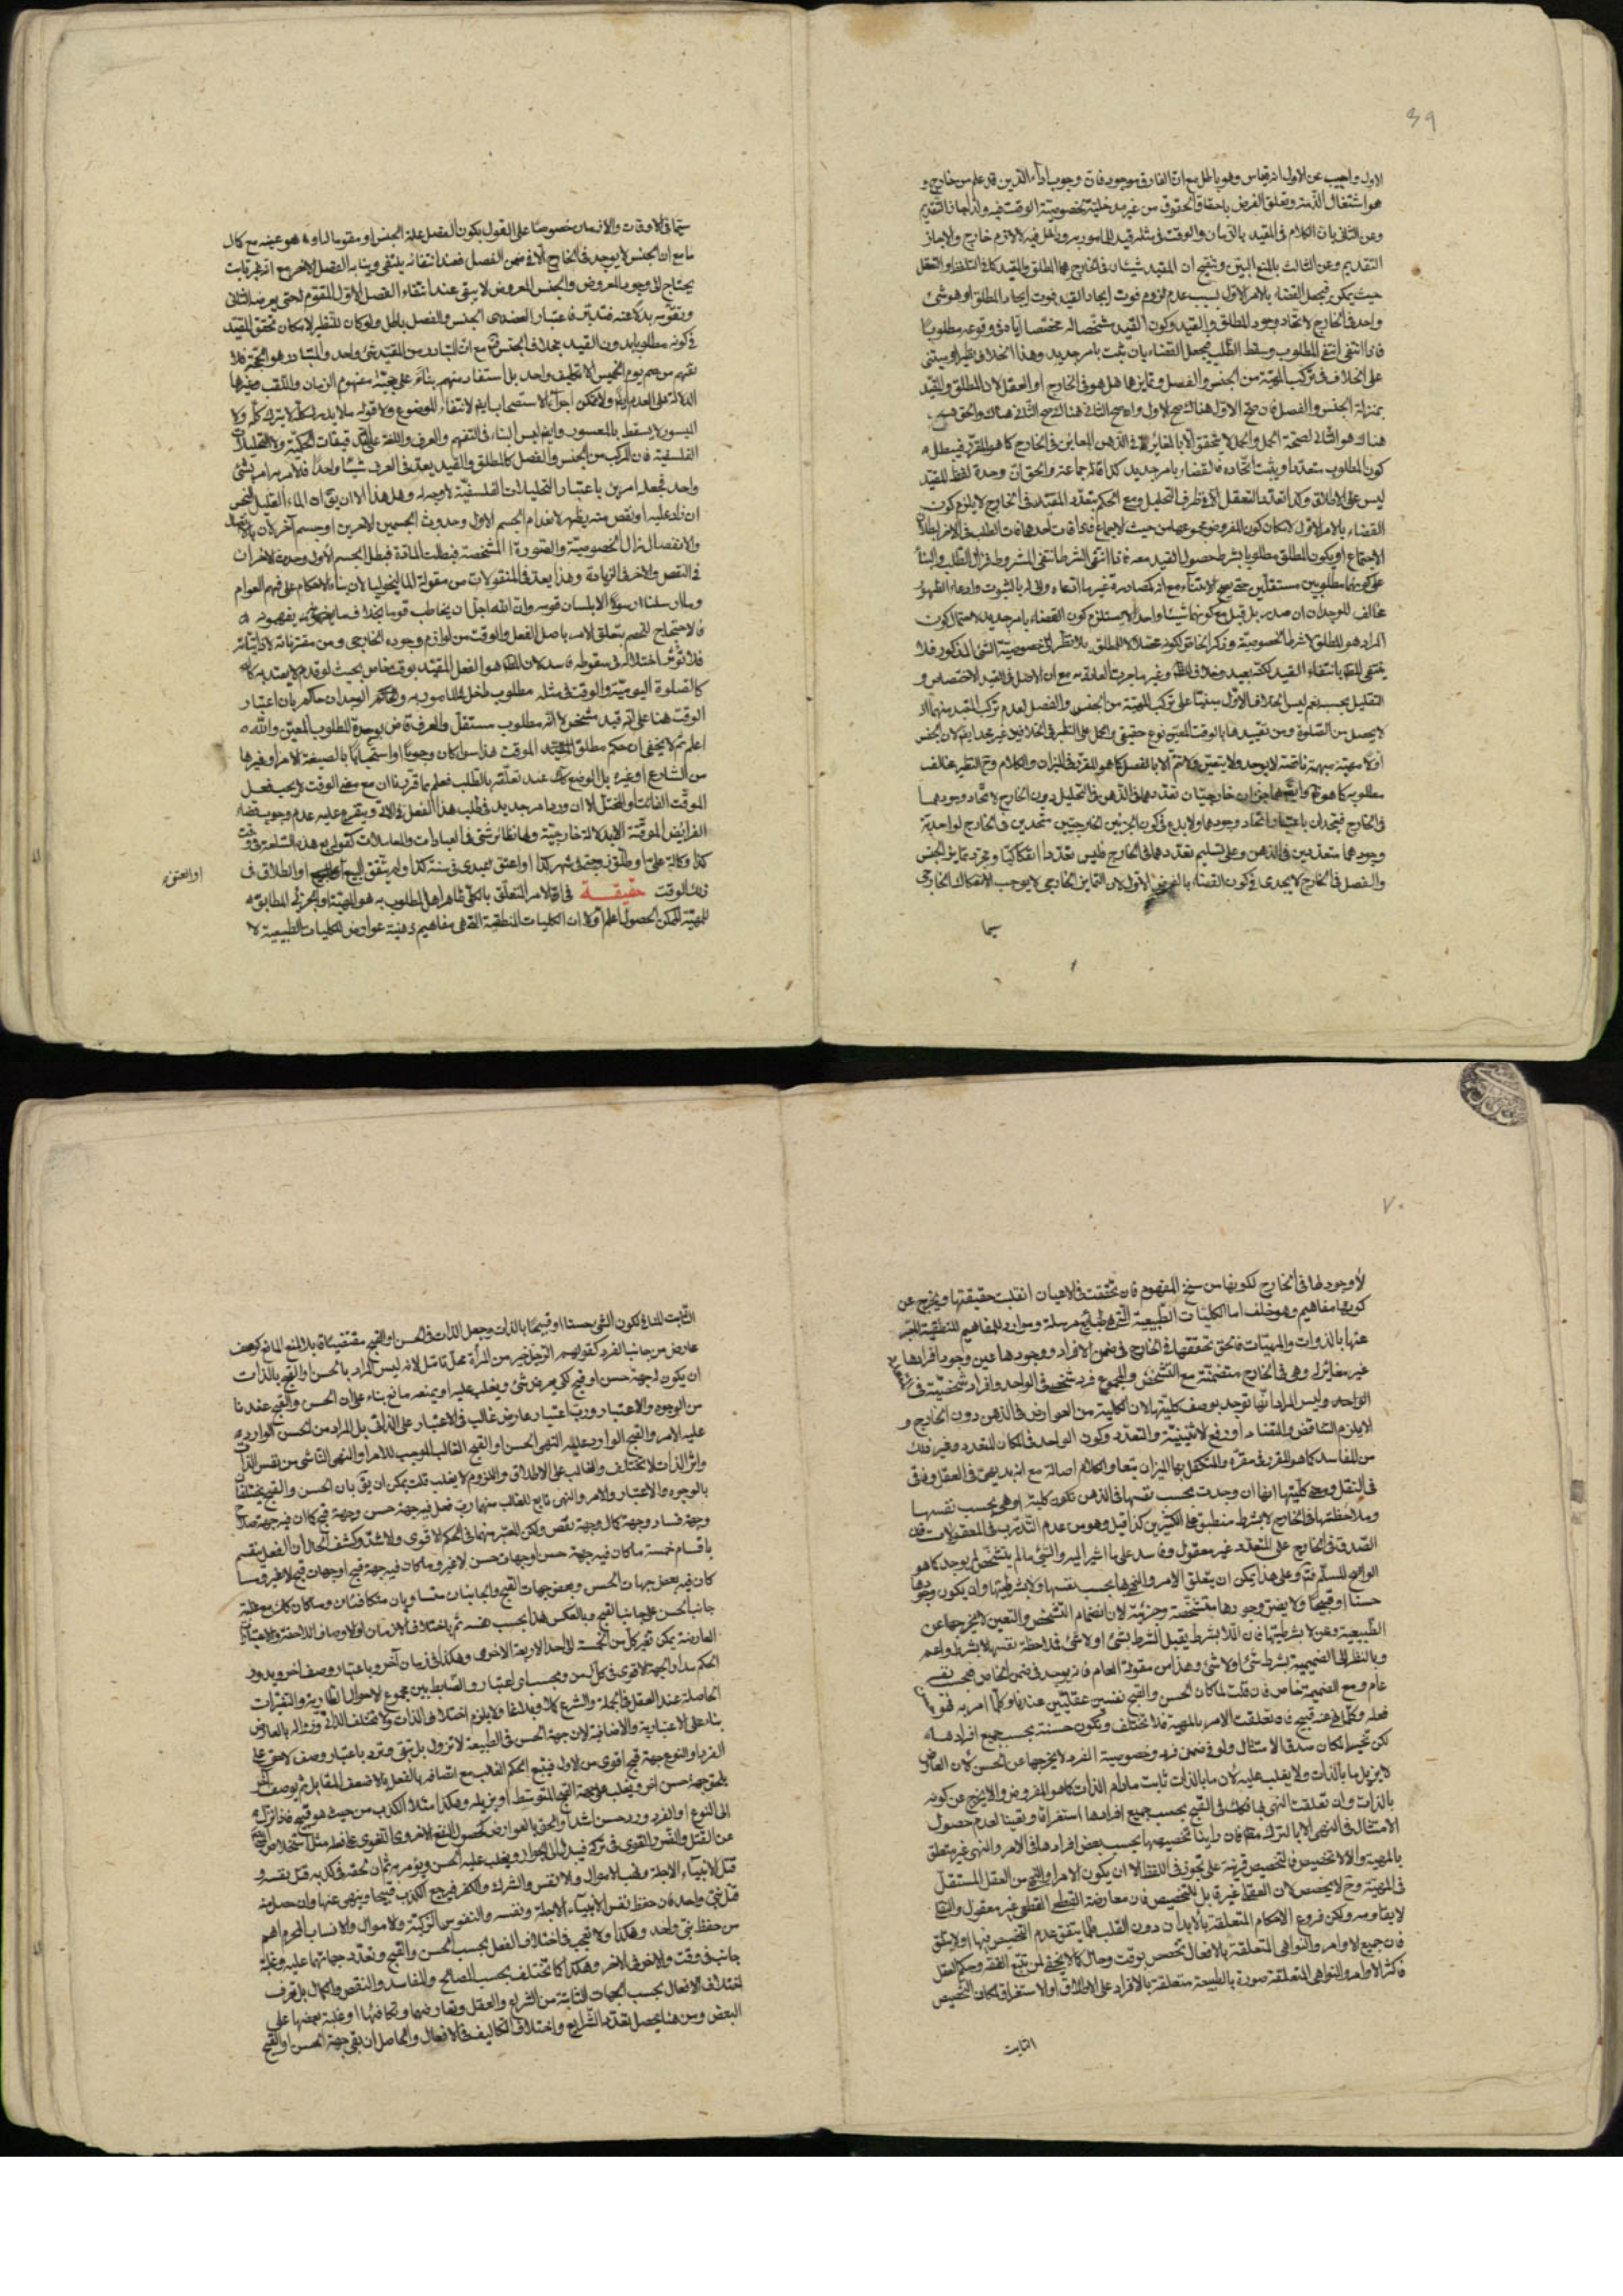 ٦٩
الاول واجيب عن الاول انه قياس وهو باطل مع ان الفارق موجود فان وجوب اداء الدين قد علم من خارج و
هو اشتغال الذمة وتعلق الغرض باحقاق الحقوق من غير مدخلية لخصوصية الوقت فيه ولذا جاز التقديم
وعن الثاني بان الكلام في المقيد بالزمان والوقت في مثله قيد للمامور به وداخل فيه لا لازم خارج والا لجاز
التقديم وعن الثالث بالمنع البين وتنقيح ان المقيد شيئان في الخارج هما المطلق والمقيد كما في التلفظ او التعقل
حيث يمكن فيجعل القضاء بالامر الاول لسبب عدم لزوم فوت ايجاد القيد فوت ايجاد المطلق او هو شيئ
واحد في الخارج لاتحاد وجود المطلق والقيد وكون القيد مشخصا له مخصصا اياه في وقوعه مطلوبا
فاذا انتفى انتفى المطلوب وسقط الطلب فيجعل القضاء بان يثبت بامر جديد وهذا الخلاف نظير او يبتنى
على الخلاف في تركب المهية من الجنس والفصل وتمايزهما هل هو في الخارج او العقل لان المطلق والمقيد
بمنزلة الجنس والفصل فان صح الاول هناك صح الاول وان صح الثاني هناك صح الثاني هناك والحق
هناك هو الثاني لصحة الحمل والحمل لا يتحقق الا بالمغاير في الذهن المعاين في الخارج كما هو المقرر فيبطل
كون المطلوب متعددا ويثبت اتحاده فالقضاء بامر جديد كذا قاله جماعة والحق ان وحدة لفظ المقيد
ليس على الاطلاق وكذا تعدد التعقل الا في ظرف التحليل ومع الحكم بتعدد المقيد في الخارج لا يلزم كون
القضاء بالامر الاول لامكان كون المفروض مجموعهما من حيث الاجتماع فاذا فات احدهما فات الطلب في الاخر
الاجتماع او يكون المطلق مطلوبا بشرط حصول القيد معه فاذا انتفى الشرط انتفى المشروط فزال الطلب والبناء
على كونهما مطلوبين مستقلين حتى يصح الابتناء مع انه مصادرة غير ما ادعاه واولى بالثبوت وادعاء الظهور
مخالف للوجدان ان صدر بل قيل مع كونهما شيئا واحدا لا يستلزم كون القضاء بامر جديد لاحتمال كون
المراد هو المطلق لا شرط الخصوصية وذكر الخاص لكونه محصلا للمطلق بلا نظر الى خصوصية الشئ المذكور فلا
ينتفى بانتفاء القيد لكنه بعيد وخلاف وغير ما جرت العادة به مع ان الاصل في القيد الاختصاص و
التقليل بحسبه نعم ليس الخلاف الاول مبنيا على تركب المهية من الجنس والفصل لعدم تركب المقيد منهما اذ
لا يحصل من الصلوة ومن تقييدها بالوقت المعين نوع حقيقي والحمل على النظير في الخلافين غير مجد ايضا لان الجنس
مهية مبهمة ناقصة لا يوجد ولا يتعين ولا تتم الا بالفصل كما هو المقرر في الميزان والكلام وتم النظير مخالف
مطلوبه كما هو خارجيان تعددهما في الذهن في التحليل دون الخارج لاتحاد وجودهما
في الخارج فيتحدان باعتبار اتحاد وجودهما ولا بدع في كون الجزئين الخارجيين متحدين في الخارج لواحدية
وجودهما متعددين في الذهن وعلى تسليم تعددهما في الخارج فليس تعددا انفكاكيا ومجرد تمايز الجنس
والفصل في الخارج لا يجدى في كون القضاء بالفرض الاول لان التمايز الخارجي لا يوجب الانفكاك الخارجي
سيما
سيما في الاوقات والازمان خصوصا على القول بكون الفصل علة الجنس او مقوما له هو عينه مع كال
ما مع ان الجنس لا يوجد في الخارج الا في ضمن الفصل فعند انتفائه ينتفى وينابه الفصل الاخر مع انه غير ثابت
يحتاج الى وجود المعروض والجنس المعروض لا يبقى عند انتفاء الفصل الاول المقوم له حتى يعرضه الثاني
ويقومه بدلا عنه فتدبر فاعتبار العضدى الجنس والفصل باطل ولو كان للنظير لامكان تحقق المقيد
في كونه مطلوبا بدون القيد بخلاف الجنس مع ان التبادر من المقيد شئ واحد والتبادر هو الحجة فلا
يفهم من صم يوم الخميس الا تكليف واحد بل استفاد منهم بناء على حجية مفهوم الزمان واللقب وغيرها
الدلالة على العدم ولا يمكن اجراء الاستصحاب ايضا لانتفاء الموضوع ولا قوله ما لا يدرك كله لا يترك كله ولا
الميسور لا يسقط بالمعسور وايضا ليس البناء في التفهيم والعرف واللغة على التدقيقات الحكمية ولا التحليلات
الفلسفية فان المركب من الجنس والفصل كالمطلق والمقيد يعد في العرف شيئا واحدا فالامر به امر بشئ
واحد فجعله امرين باعتبار التحليلات الفلسفية لا وجه له وهل هذا الا ان يقال ان الماء القليل النجس
ان زاد عليه او نقص منه يطهر لانعدام الجسم الاول وحدوث الجسمين الاخرين او جسم آخر لان بالاتصال
والانفصال زال الخصوصية والصورة المشخصة فبطلت المادة فبطل الجسم الاول وحدث الاخران
في النقص والاخر في الزيادة وهذا يعد في المنقولات من مقولة الماليخوليا لان بناء الاحكام على فهم العوام
وما ارسلنا من رسول الا بلسان قومه وان الله اجل ان يخاطب قوما بخلاف ما يفهمونه
فالاحتجاج للخصم بتعلق الامر باصل الفعل والوقت من لوازم وجوده الخارجي ومن مقترناته لا ذاتياته
فلا تؤثر اختلاله في سقوطه فاسد لان هو الفعل المقيد بوقت خاص بحيث لو قدم لا يعتد به كما
كالصلوة اليومية والوقت في مثله مطلوب دخله للمامور به والحاكم الوجدان حاكم بان اعتبار
الوقت هنا على انه قيد مشخص لا انه مطلوب مستقل والعرف قاض بوحدة المطلوب المعين والله
اعلم ثم لا يخفى ان حكم مطلق الموقت هذا سواء كان وجوبا او استحبابا بالصيغة الامر او غيرها
من الشارع او غيره بل الوضع كذلك عند تعلقه بالطلب فعلم مما قررنا ان مع مضى الوقت لا يجب فعل
الموقت الفائت او المختل الا ان ورد امر جديد في طلب هذا الفعل ويتفرع عليه عدم وجوب قضاء
الفرائض الموقتة الا بدلالة خارجية ولها نظائر شتى في العبادات والمعاملات كقوله بع هذه السلعة في وقت
كذا وكالة على او طلق زوجتى في شهر كذا او اعتق عبدى في سنة كذا ولم يتفق البيع او الطلاق في
او العتق
ذلك الوقت حقيقة في ان الامر المتعلق بالكلى ظاهرا هل المطلوب به هو المهية او الجزئى المطابق
للمهية الممكن الحصول اعلم اولا ان الكليات المنطقية التى هى مفاهيم ذهنية عوارض للكليات الطبيعية لا
٧٠
لا وجود لها في الخارج لكونها من سنخ المفهوم فان تحققت في الاعيان انقلبت حقيقتها ويخرج عن
كونها مفاهيم وهو خلف اما الكليات الطبيعية التى هى طبائع مرسلة وموارد للمفاهيم المنطقية المعبر
عنها بالذوات والمهيات فالحق تحققها في الخارج في ضمن الافراد ووجودها عين وجود افرادها
غير مغاير له وهى في الخارج متضمنة مع التشخص والمجموع فرد شخصى في الواحد وافراد شخصية في
الواحد وليس المراد انها توجد بوصف كليتها لان الكلية من العوارض في الذهن دون الخارج و
الا يلزم التناقض والمتضاد او رفع الاثنينية والتعدد وكون الواحد في المكان المتعدد وغير ذلك
من المفاسد كما هو المقرر في مقره والمتكفل بها الميزان تبعا والكلام اصالة مع انه بديهى في العقل وفرق
في النقل ومعنى كليتها انها ان وجدت بحسب نفسها في الذهن تكون كلية او هى بحسب نفسها
وملاحظتها في الخارج لا بشرط منطبق على الكثيرين كذا قيل وهو من عدم التدرب في المعقولات فان
الصدق في الخارج على المتعدد غير معقول وفاسد على ما اشير اليه والشئ ما لم يتشخص لم يوجد كما هو
الواضح المسلم وعلى هذا يمكن ان يتعلق الامر والنهى بها بحسب نفسها ولا بشرطيتها وان يكون وجودها
حسنا او قبيحا ولا يضر وجودها متشخصة وجزئية لان انضمام التشخص والتعين لا يخرجها عن
الطبيعية وعن لا بشرطيتها فان اللا بشرط يقبل الشرط بشئ او لا شئ فملاحظة نفسها لا بشرط واعم
وبالنظر الى الضميمة بشرط شئ او لا شئ وهذا من مقولة العام فانه يوجد في ضمن الخاص فبحسب نفسه
عام ومع الضميمة خاص فان قلت لما كان الحسن والقبح نفسيين عقليين عندنا وكلما امر به فهو
فعله وكلما نهى عنه قبيح فان تعلقت الامر بالمهية فلا تختلف وتكون حسنة بحسب جميع افرادها
لكن تخيير المكان صدق الامتثال ولو في ضمن فرد وخصوصية الفرد لا يخرجها عن الحسن لان العارض
لا يزيل ما بالذات ولا يغلب عليه لان ما بالذات ثابت ما دام الذات كما هو المفروض والا يخرج عن كونه
بالذات وان تعلقت النهى بها فكذلك في القبح بحسب جميع افرادها استغراقا ويقينا لعدم حصول
الامتثال في النهى الا بالترك فان راينا تخصيصها بحسب بعض افرادها في الامر والنهى غير متعلق
بالمهية والا لا تخصيص فالتخصيص قرينة على تجوز في اللفظ الا ان يكون الامر او النهى من العقل المستقل
في المهية وح لا يخصص لان العقلى غير قابل للتخصيص فان معارضة القطعى القطعى غير معقول والنقل
لا يقاومه ولكن فروع الاحكام المتعلقة بالابدان دون القلب فلما يتفق عدم التخصيص فيها اولا يتفق
فان جميع الاوامر والنواهى المتعلقة بالافعال تخصص بوقت وحال كما لا يخفى لمن تتبع الفقه وحكم العقل
فاكثر الاوامر والنواهى المتعلقة صورة بالطبيعة متعلقة بالافراد على الاطلاق او الاستغراق لمكان التخصيص
الثابت
الثابت المنافى لكون الشئ حسنا او قبيحا بالذات وجعل الذات في الحسن او القبح مقتضيا قابلا للمنع المانع كوصف
عارض من جانب الفرد كقولهم الرجل خير من المرأة محل تامل لانه ليس المراد بالحسن او القبح بالذات
ان يكون لجهة حسن او قبح لكى يعرض شئ ويغلب عليه او يمنعه مانع بناء على ان الحسن والقبح عندنا
من الوجوه والاعتبار ورب اعتبار عارض غالب في الاعتبار على الذاتى بل المراد من الحسن الوارد
عليه الامر والقبح الوارد عليه النهى الحسن او القبح الغالب الموجب للامر او النهى الناشى من نفس الذات
واثر الذات لا يختلف والغالب على الاطلاق واللزوم لا يغلب قلت يمكن ان يقال بان الحسن والقبح يختلفان
بالوجوه والاعتبار والامر والنهى تابع للغالب منهما رب فعل فيه جهة حسن وجهة قبح كما ان فيه جهة صلاح
وجهة فساد وجهة كمال وجهة نقص ولكن المعتبر منهما في الحكم الاقوى والاشد وكشف الحال ان الفعل ينقسم
باقسام خمسة ما كان فيه جهة حسن او جهات حسن لا غير وما كان فيه جهة قبح او جهات قبح لا غير وما
كان فيه بعض جهات الحسن وبعض جهات القبح والجانبان متساويان متكافئان وما كان كذلك مع غلبة
جانب الحسن على جانب القبح وبالعكس هذا بحسب نفسه ثم باختلاف الازمان او الاوصاف اللاحقة والاعتبارات
العارضة يمكن تغير كل من الخمسة الى احد الاربعة الاخرى وهكذا في زمان آخر وباعتبار وصف اخر ويدور
الحكم مدار الجهة الاقوى في كل زمن وبحسب اى اعتبار والضابط بين مجموع الاحوال الطارية والتغيرات
الحاصلة عند العقل في الجملة والشرع كلا وبلاغا ولا يلزم اختلاف الذات ولا تختلف الذاتى وزواله بالعارض
بناء على الاعتبارية والاضافية لان جهة الحسن في الطبيعة لا تزول بل تبقى وترد باعتبار وصف لاحق على
الفرد او النوع جهة قبح اقوى من الاول فيتبع الحكم الغالب مع اتصافه بالفعل بالاضعف المقابل ثم بوصف اخر
يلحق جهة حسن اخر ويغلب على جهة القبح المتوسط او يزيله وهكذا مثلا الكذب من حيث هو قبيح فاذا نزل
الى النوع او الفرد ورد حسن اشد او الحق بالعوارض لحصول النفع الاخروى القوى كما فى مثل استخلاص النبى
عن القتل والنفس والقوى في تركه فيدل الى الجواز ويغلب عليه الحسن ويؤمر به ثم ان لحقه في كذبه قتل نفسه و
قتل الانبياء الاجلة ونهب الاموال والانفس والشرك والكفر فيرجع الكذب قبيحا وينهى عنها وان حصل منه
قتل نبى واحد فان حفظ نفس الانبياء الاجلة ونفسه والنفوس الزكية والاموال والانساب المحرم اهم
من حفظ نبى واحد وهكذا ولا قبح فاختلاف الفعل بحسب الحسن والقبح وتعدد جهاتهما عليه وغلبة
جانب في وقت والاخرى في الاخر وهكذا كما تختلف بحسب المصالح والمفاسد والنقص والكمال بل تعرف
اختلاف الافعال بحسب الجهات الثابتة من الشرايع والعقل وتعارضها وتكافئها او غلبة بعضها على
البعض ومن هنا يحصل تعدد الشرايع واختلاف التكاليف في الافعال والحاصل ان تبقى جهة الحسن او القبح